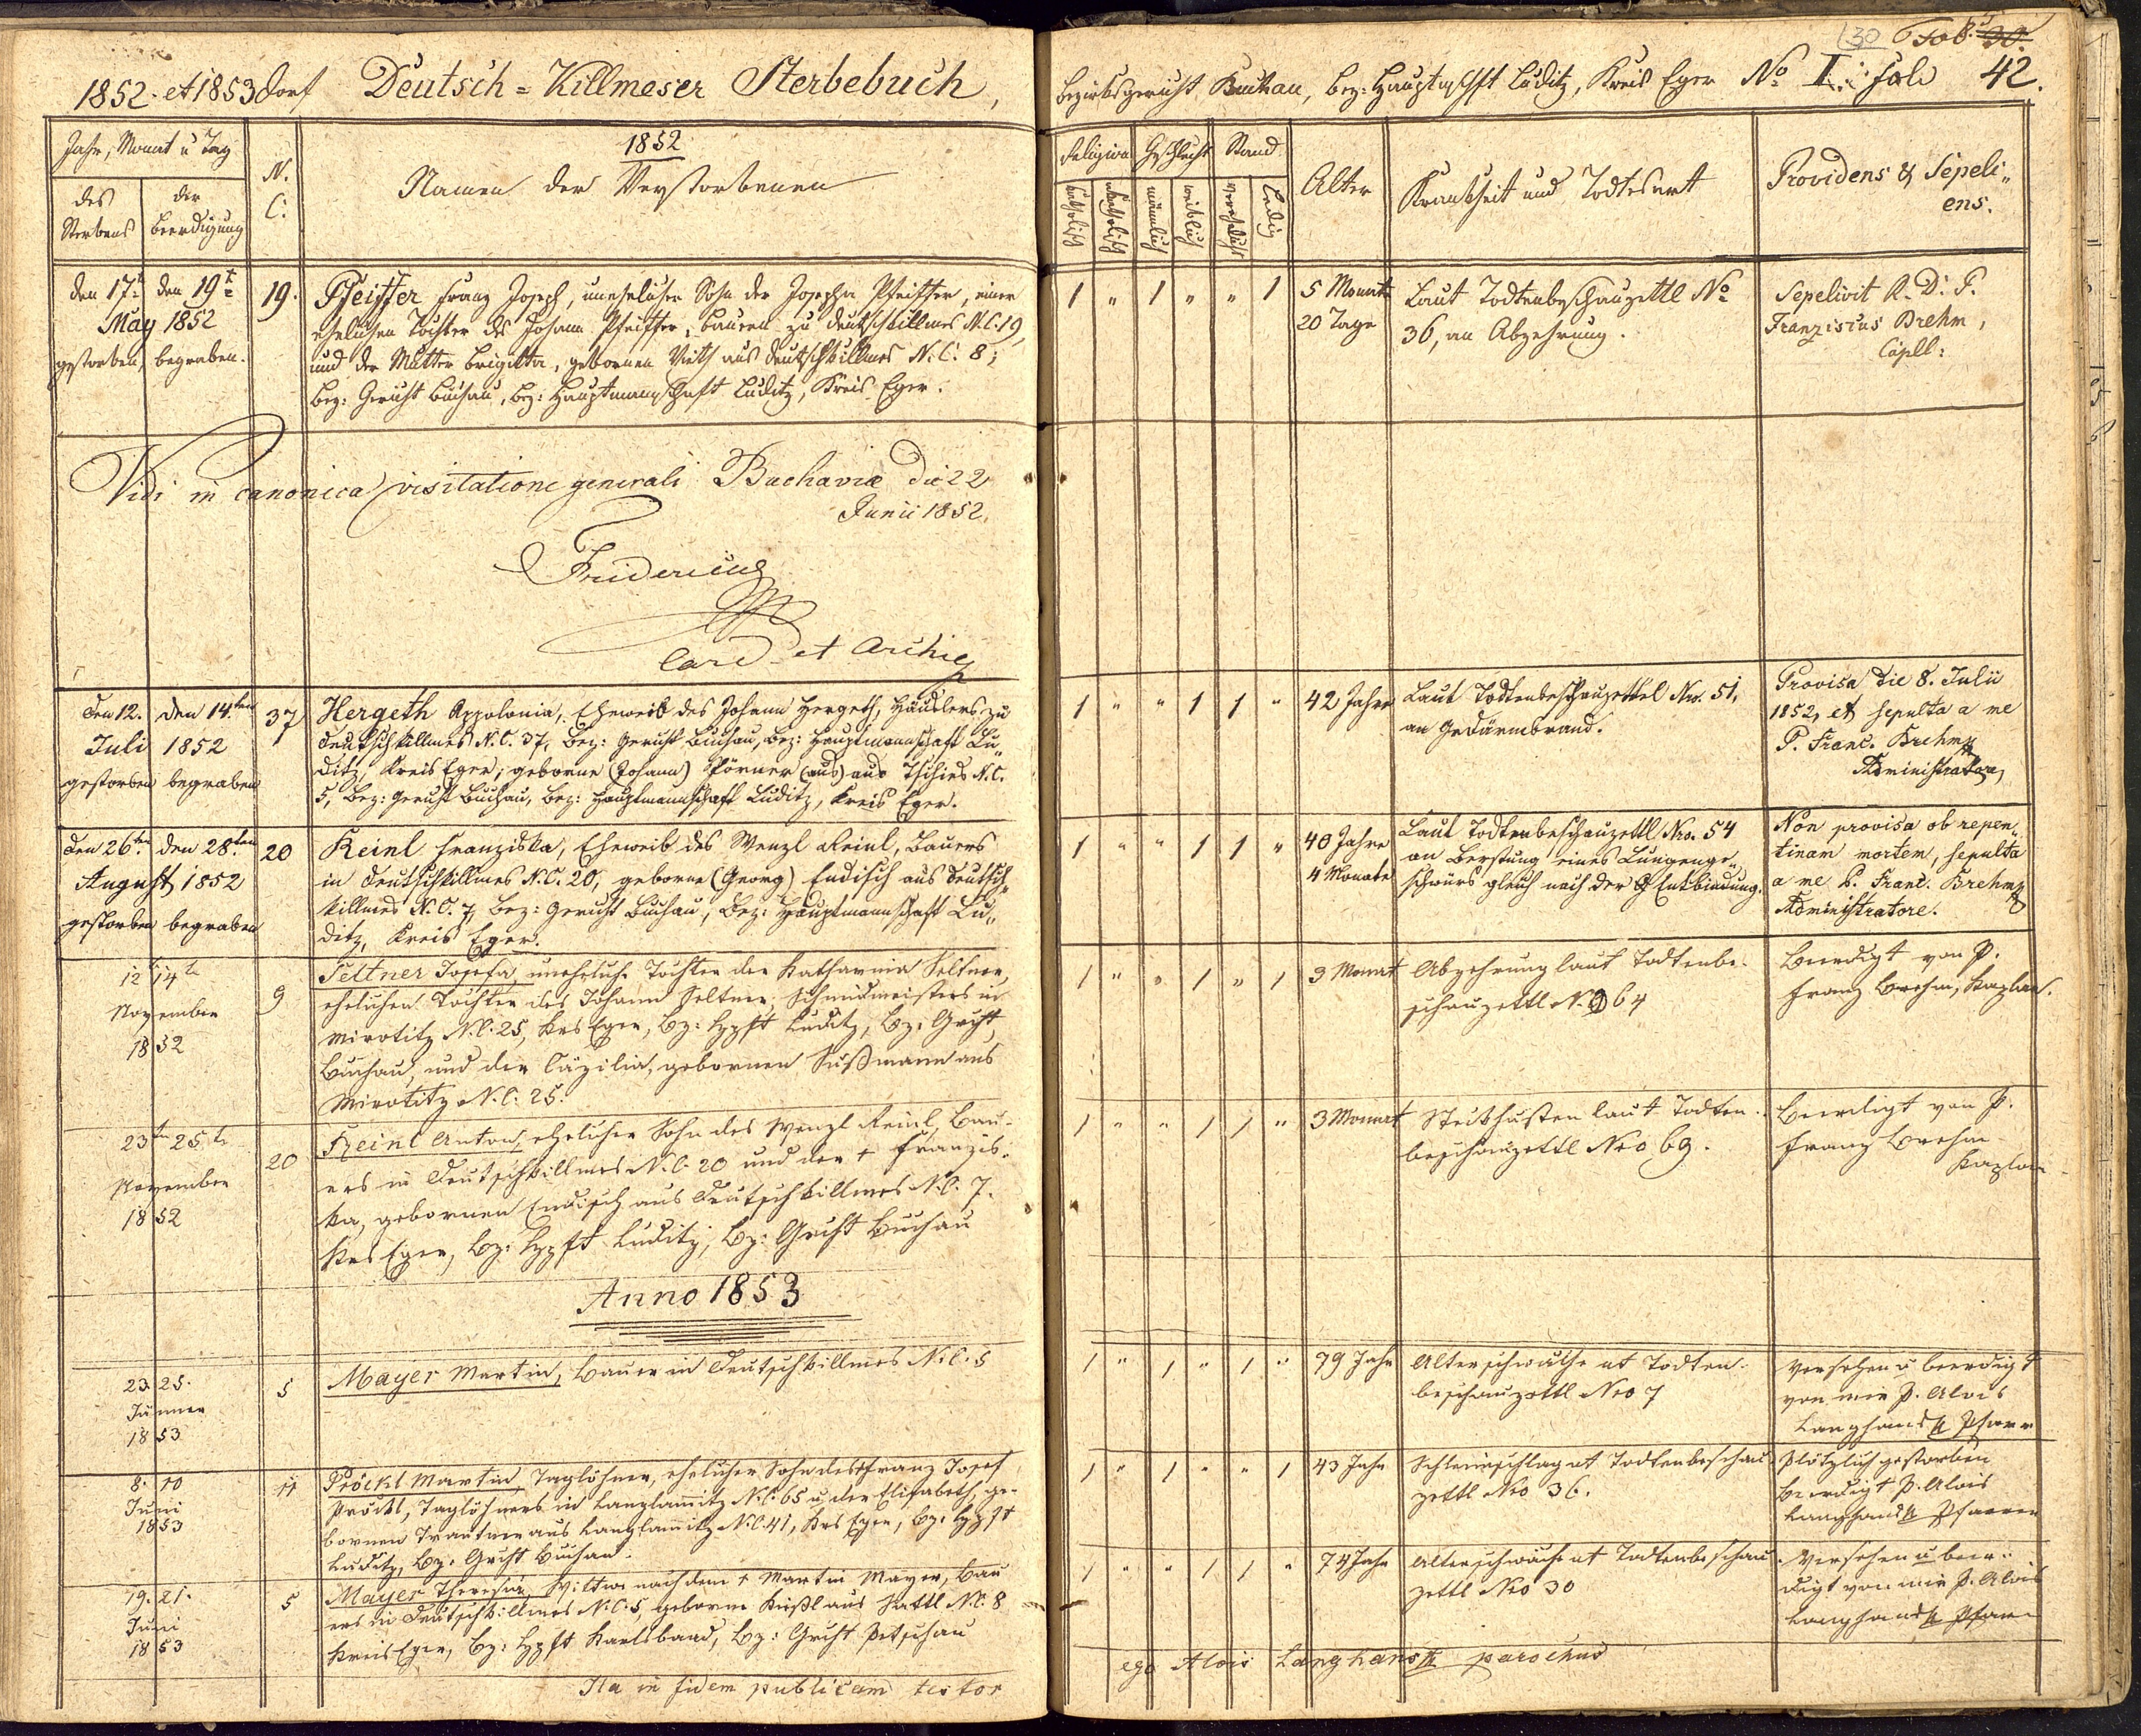 1852. et 1853 Dorf Deutsch = Killmeser Sterbebuch,
Bezirksgericht Buchau, Bez: Hauptmschft Luditz, Kreis Eger No I. Fol: 42.
30
Fol. 30.
Jahr, Monat u Tag
des Sterbens
der Beerdigung
N. C:
1852
Namen der Verstorbenen
Religion
Geschlecht
Stand
katholisch
akatholisch
männlich
weiblich
verehelicht
Ledig
Alter
Krankheit und Todtesart
Providens & Sepeli„
ens.
den 17t den 19t
May 1852
gestorben, begraben.
19.
Pfeiffer Franz Joseph, unehelicher Sohn der Josepha Pfeiffer, einer
ehelichen Tochter des Johann Pfeiffer, Bauern zu Deutschkillmes N.C. 19,
und der Mutter Brigitta, gebornen Veith aus Deutschkillmes N.C. 8;
Bez: Gericht Buchau, Bez: Hauptmannschaft Luditz, Kreis Eger.
1 „ 1 „ „ 1
5 Monate
20 Tage
Laut Todtenbeschauzettl No
36, an Abzehrung.
Sepelivit R. D. P.
Franziscus Brehm,
Capll:
Vidi in canonica visitatione generali Buchaviæ die 22
Junii 1852.
Fridericus
Card et Archiep
den 12. den 14.ten
Juli 1852
gestorben begraben
37
Hergeth Appolonia, Eheweib des Johann Hergeth, Häuslers zu
Deutschkillmes N.C. 37, Bez: Gericht Buchau, Bez: Hauptmannschaft Lu„
ditz, Kreis Eger; geborne (Johann) Pörner (aus) aus Tschies N.C.
5, Bez: Gericht Buchau, Bez: Hauptmannschaft Luditz, Kreis Eger.
1 „ „ 1 1 „
42 Jahre
Laut Todtenbeschauzettel Nro. 51,
an Gedärmbrand.
Provisa die 8. Julii
1852, et sepulta a me
P. Franc. Brehm
Administratore,
den 26ten den 28.ten
August 1852
gestorben begraben
20
Reinl Franziska, Eheweib des Wenzl Reinl, Bauers
in Deutschkillmes N.C. 20, geborne (Georg) Endisch aus Deutsch„
killmes N.C. 7, Bez: Gericht Buchau, Bez: Hauptmannschaft Lu„
ditz, Kreis Eger.
1 „ „ 1 1 „
40 Jahre
4 Monate
Laut Todtenbeschauzettl Nro. 54
an Berstung eines Lungenge„
schwürs gleich nach der Entbindung.
Non provisa ob repen„
tinam mortem, sepulta
a me P. Franc. Brehm
Administratore.
12 14t
November
1852
9
Seltner Josefa, uneheliche Tochter der Katharina Seltner,
ehelichen Tochter des Johann Seltner, Schmidmeisters in
Mirotitz N.C. 25, Krs Eger, Bz: Hptft Luditz, Bz: Gricht
Buchau, und der Cäzilia, gebornen Süßmann aus
Mirotitz N.C. 25.
1 „ „ 1 „ 1
3 Monat
Abzehrung laut Todtenbe-
schauzettl N. 64
Beerdigt von P.
Franz Brehm, Kaplan.
23tn 25tn
November
1852
20
Reinl Anton, ehelicher Sohn des Wenzl Reinl, Bau-
ers in Deutschkillmes N.C. 20 und der + Franzis-
ka, gebornen Endisch aus Deutschkillmes N.C. 7.
Krs Eger, Bz: Hptft Luditz, Bz: Gricht Buchau
1 „ „ 1 1 „
3 Monat
Stickhusten laut Todten-
beschauzettl Nro 69.
Beerdigt von P.
Franz Brehm
Kaplan
Anno 1853
23. 25.
Jänner
1853
5
Mayer Martin, Bauer in Deutschkillmes N.C. 5
1 „ 1 „ 1 „
79 Jahr
Altersschwäche ut Todten-
beschauzettl Nro 7
Versehen u beerdigt
von mir P. Alois
Langhans Pfarr
8. 10
Juni
1853
11
Pröckl Martin, Taglöhner, ehelicher Sohn des Franz Josef
Pröckl, Taglöhners in Langlamitz N.C. 65 u. der Elisabeth, ge-
bornen Trautner aus Langlamitz N.C. 41, Krs Eger, Bz: Hptft
Luditz, Bz: Gricht Buchau.
1 „ 1 „ „ 1
43 Jahr
Schleimschlag ut Todtenbeschau
zettl Nro 36.
Plötzlich gestorben
Beerdigt P. Alois
Langhans Pfarrer
19. 21.
Juni
1853
5
Mayer Theresia, Wittwe nach dem + Martin Mayer, Bau
ers in Deutschkillmes N.C. 5, geborne Küßl aus Sattl N.C. 8
Kreis Eger, Bz: Hptft Karlsbad, Bz: Gricht Petschau
1 „ „ 1 1 „
74 Jahr
Altersschwäche ut Todtenbeschau
zettl Nro 30
Versehen u beer-
digt von mir P. Alois
Langhans Pfarr
Ita in fidem publicam testor
ego Alois Langhans parochus